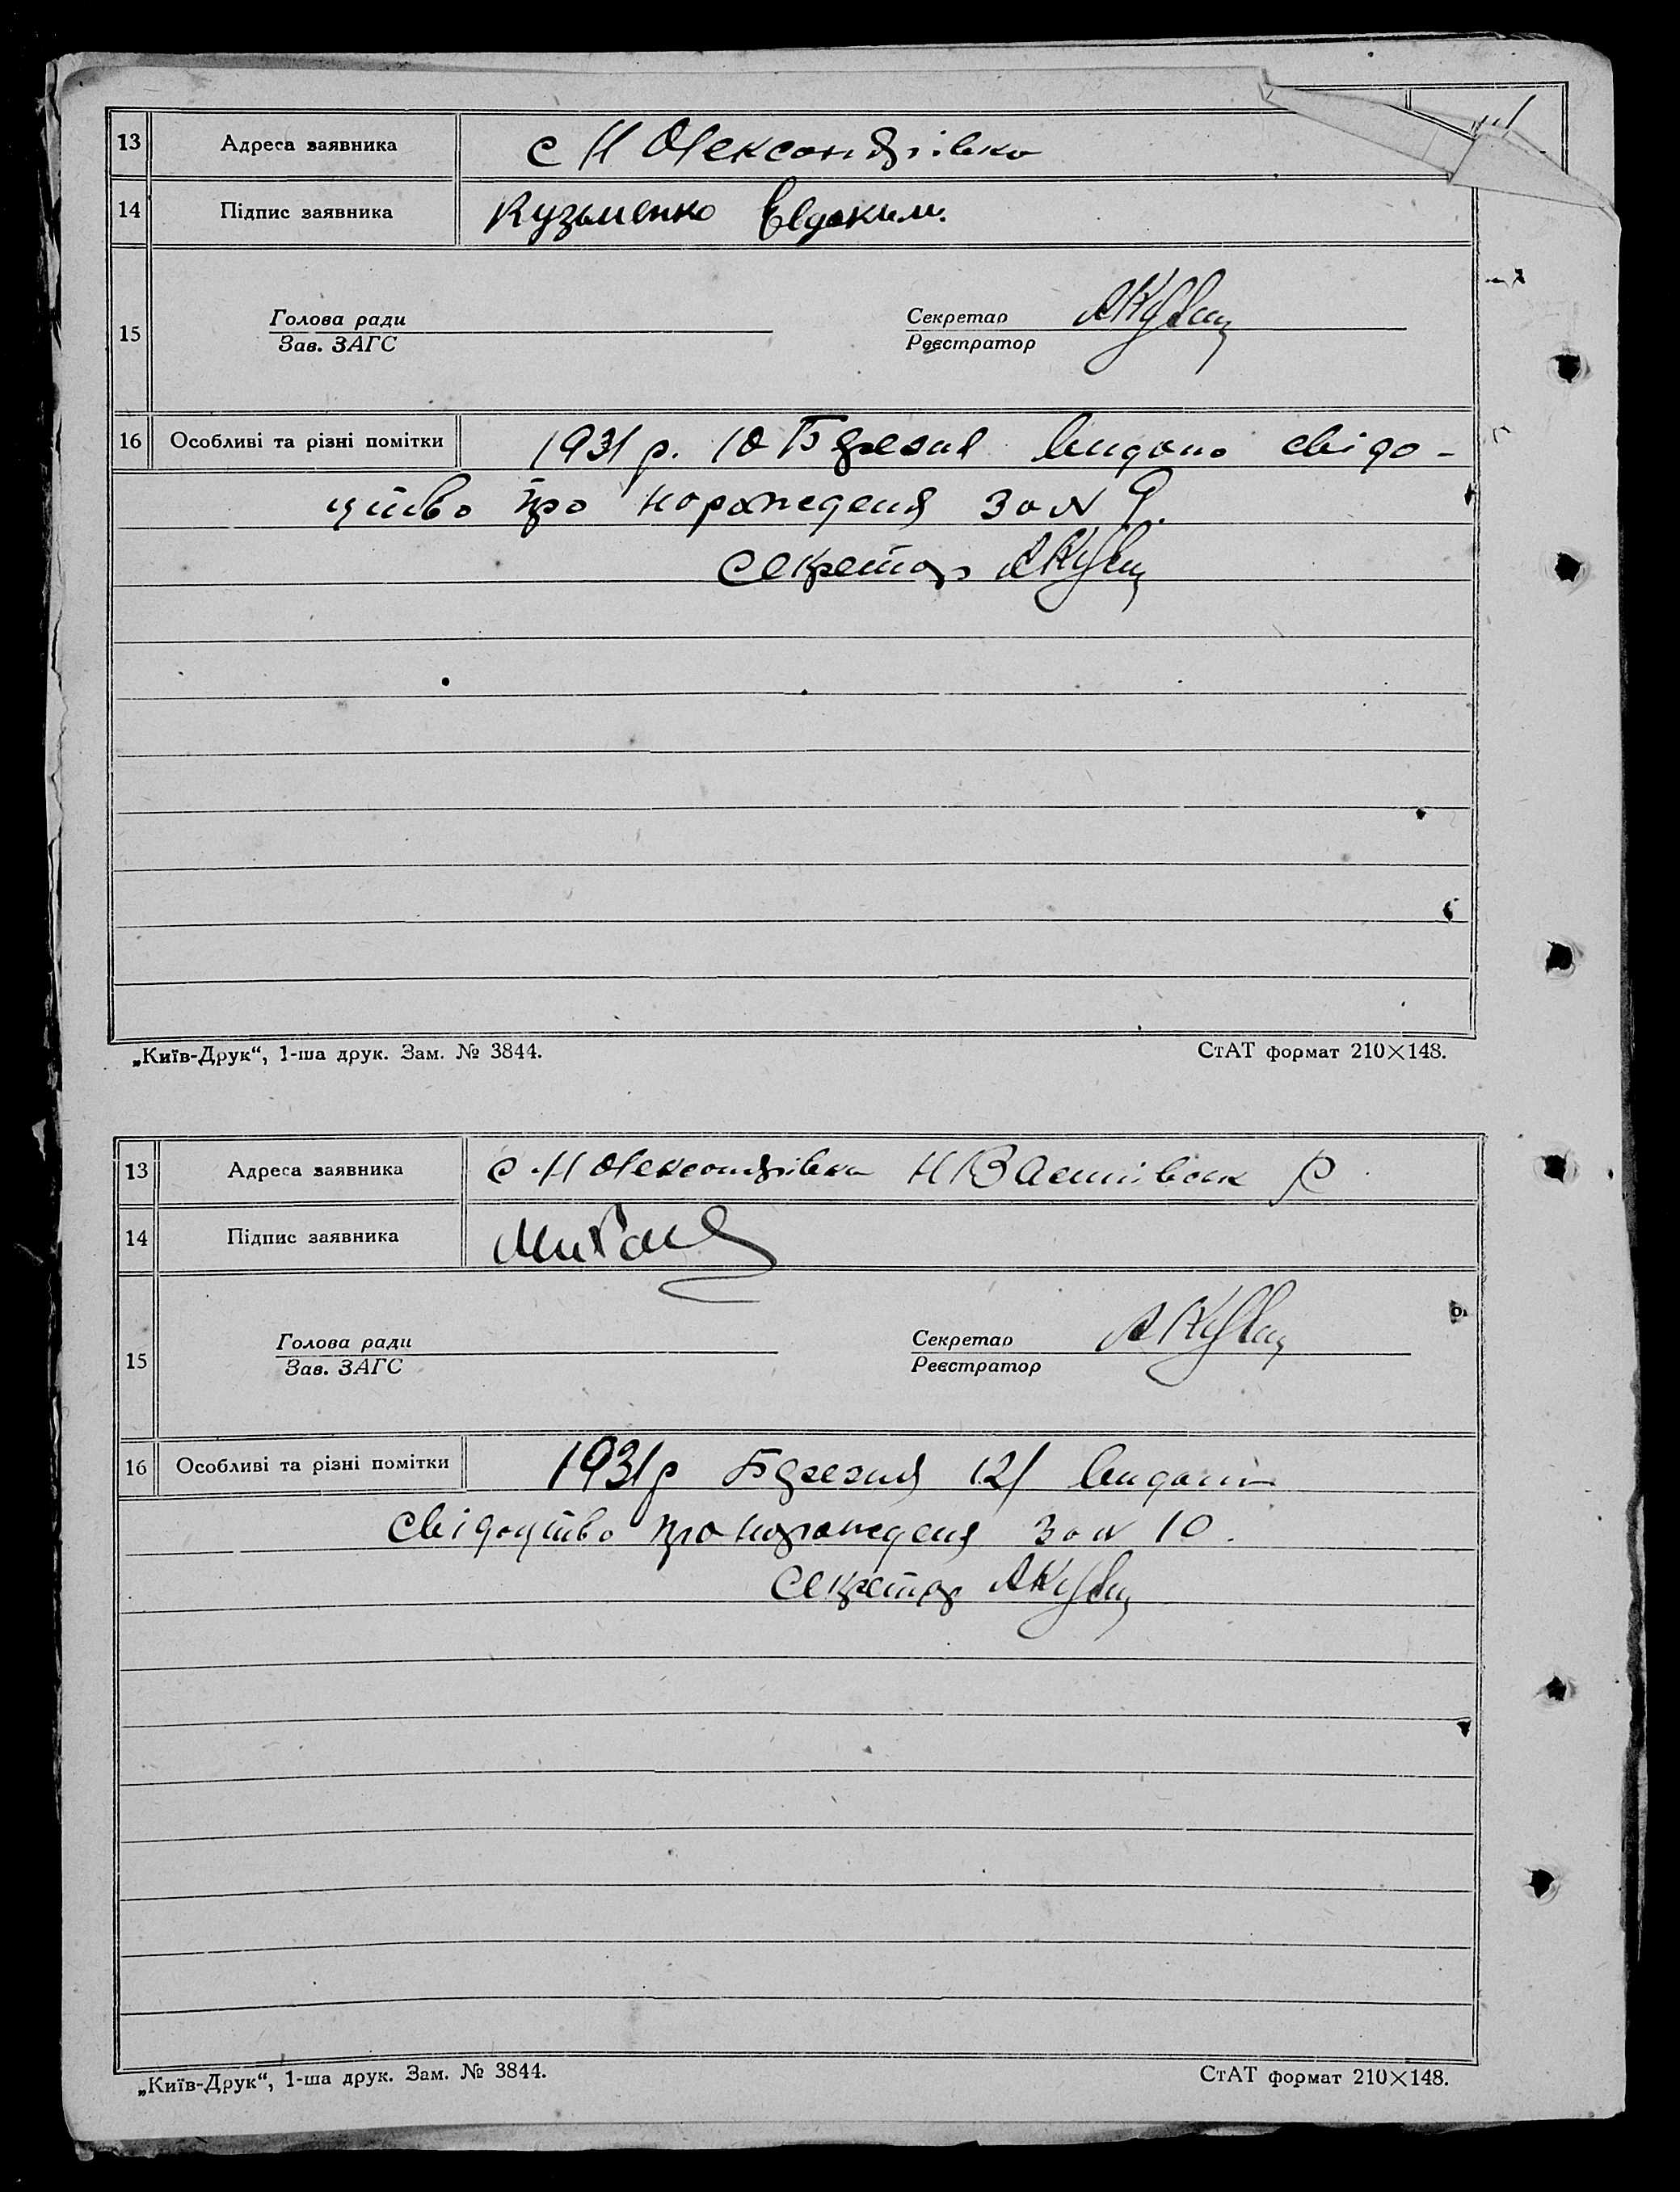 13 Адреса заявника с Н Олександрівка
14 Підпис заявника Кузьменко Евдоким.
15 Голова ради Секретар
Зав. ЗАГС Реєстратор
16 Особливі та різні помітки 1931 р. 10 Березня видано свідо-
цтво про нарождення за N 9.
Секретар
„Київ-Друк“, 1-ша друк. Зам. № 3844. СтАТ формат 210×148.
13 Адреса заявника с Н Олександрівка Н
14 Підпис заявника
15 Голова ради Секретар
Зав. ЗАГС Реєстратор
16 Особливі та різні помітки 1931 р Березня 12/ видано
свідоцтво про нарождення за N 10.
Секретар
„Київ-Друк“, 1-ша друк. Зам. № 3844. СтАТ формат 210×148.